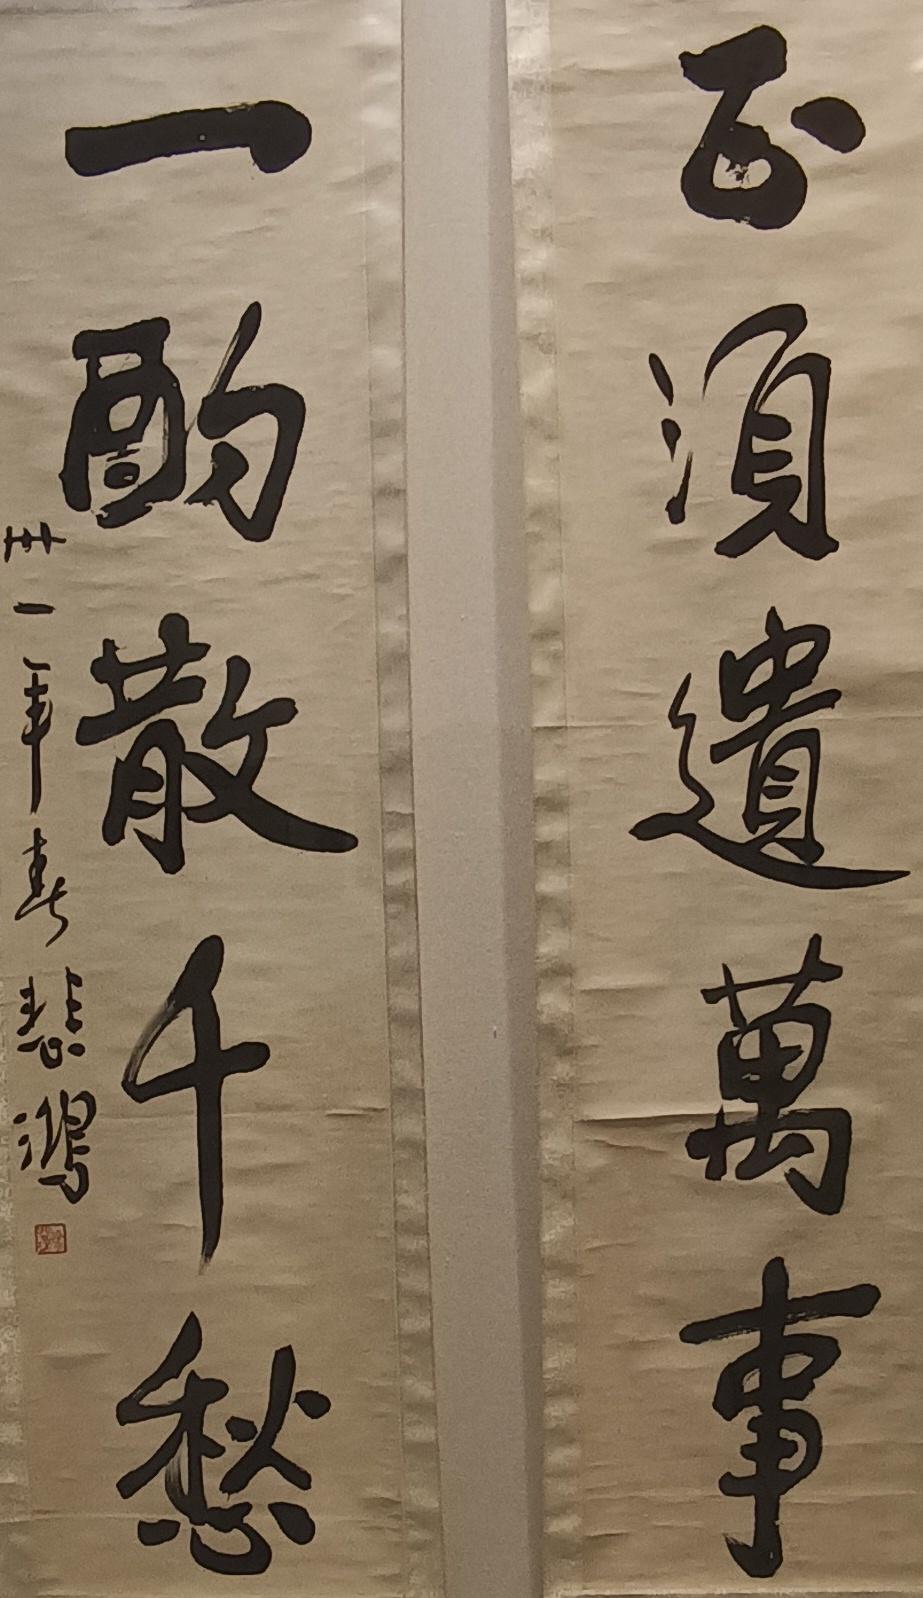 正須遺萬事
一酌散千愁
卅一年春 悲鴻